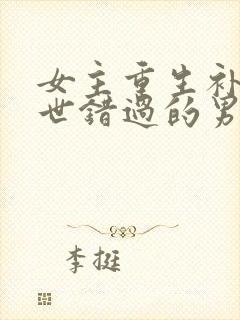 女主重生补
世错过的男
李挺